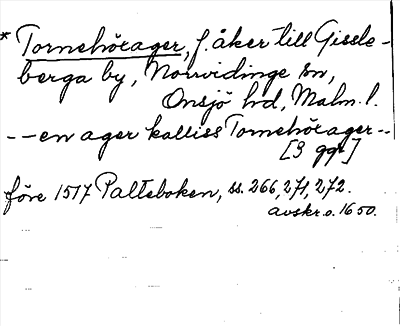 * Tornehörager, f. åker till Gissle-
berga by, Norrvidinge sn,
Onsjö hd, Malm. l.
-- en ager kalliss Tornehörager --
[3 ggr]
före 1517 Palteboken, ss. 266, 271, 272.
avskr. o. 1650.